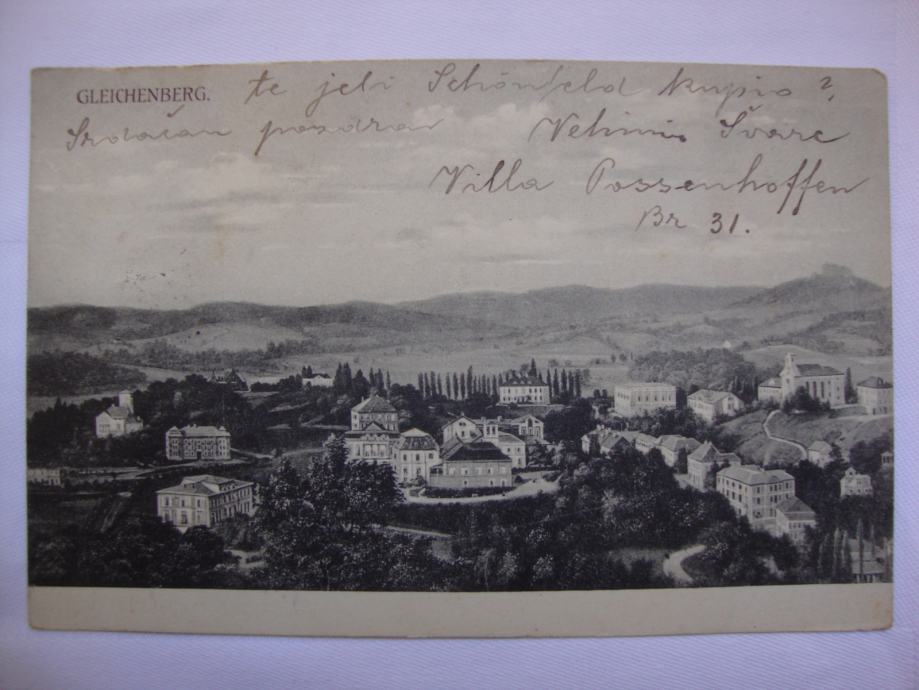 GLEICHENBERG.
te jeli Schönfeld kupio?
Srdačan pozdrav Švarc
Villa Possenhoffen
Br 31.